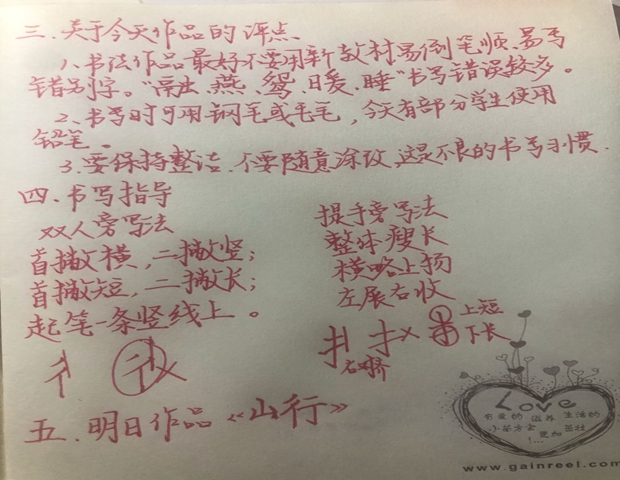 三.关于今天作品的评点
1、书法作品最好不要用新教材易倒笔顺、易写
错别字。“融、燕、鸳、暖、睡”书写错误较多。
2、书写时可用钢笔或毛笔，今天有部分学生使用
铅笔。
3.要保持整洁.不要随意涂改,这是不良的书写习惯.
四.书写指导
双人旁写法
首撇横,二撇竖;
首撇短,二撇长;
起笔一条竖线上。
提手旁写法
整体瘦长
横略上扬
左展右收
上短
下长
右挤
五.明日作品《山行》
Love
有爱的 滋养 生活的
更加 茁壮
www.gainreel.com